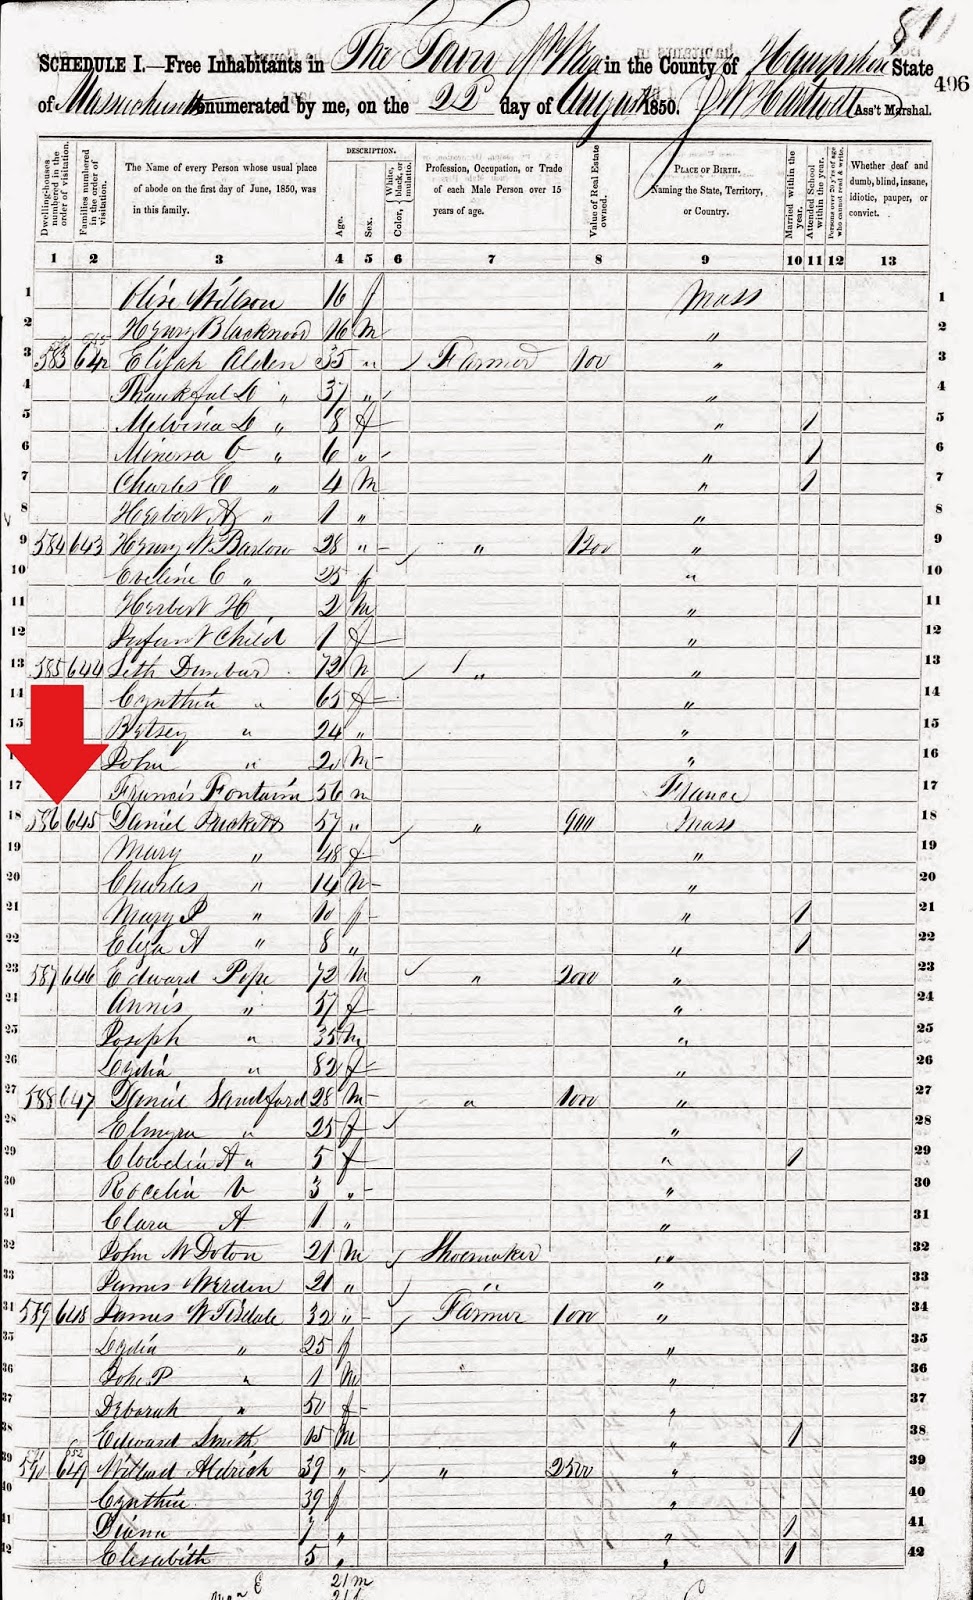 811
SCHEDULE I.—Free Inhabitants in The Town of Ware in the County of Hampshire State
496
of Massachusetts enumerated by me, on the 22d day of August 1850. Ass't Marshal.
DESCRIPTION.
Dwelling-houses numbered in the order of visitation.
Families numbered in the order of visitation.
The Name of every Person whose usual place of abode on the first day of June, 1850, was in this family.
Age.
Sex.
Color, White, black, or mulatto.
Profession, Occupation, or Trade of each Male Person over 15 years of age.
Value of Real Estate owned.
PLACE OF BIRTH. Naming the State, Territory, or Country.
Married within the year.
Attended School within the year.
Persons over 20 y'rs of age who cannot read & write.
Whether deaf and dumb, blind, insane, idiotic, pauper, or convict.
1 2 3 4 5 6 7 8 9 10 11 12 13
1 Olive Willson 16 f Mass 1
2 Henry Blackwood 16 M " 2
3 583 642 Elijah Alden 35 " Farmer 100 " 3
4 Thankful D " 37 " " 4
5 Melvina D " 8 f " 1 5
6 Minerva O " 6 " " 1 6
7 Charles E " 4 M " 1 7
8 Herbert A " 1 " " 8
9 584 643 Henry W Barlow 28 " " 1200 " 9
10 Eveline C " 25 f " 10
11 Herbert H 2 M " 11
12 Infant Child 1 f " 12
13 585 644 Seth Dunbar 72 M " " 13
14 Cynthia " 65 f " 14
15 Betsey " 24 " " 15
16 John " 20 M " 16
17 Francis Fontain 56 m France 17
18 586 645 Daniel Puckett 57 " " 900 Mass 18
19 Mary " 48 f " 19
20 Charles " 14 M " 20
21 Mary P " 10 f " 1 21
22 Eliza A " 8 " " 1 22
23 587 646 Edward Pope 72 M " 2000 " 23
24 Annis " 57 f " 24
25 Joseph " 35 M " 25
26 Lydia " 82 f " 26
27 588 647 Daniel Sandford 28 M " 1000 " 27
28 Elmyra " 25 f " 28
29 A " 5 f " 1 29
30 Rocelia V 3 " " 30
31 Clara A 1 " " 31
32 John W Doton 21 M Shoemaker " 32
33 James Werden 21 " " " 33
34 589 648 James W Tisdale 32 " Farmer 1000 " 34
35 Lydia " 25 f " 35
36 John P " 1 M " 36
37 Deborah " 50 f " 37
38 Edward Smith 15 M " 1 38
652
39 590 649 Willard Aldrich 39 " " 2500 " 39
40 Cynthia 39 f " 40
41 Diana 7 " " 1 41
42 Elisabith 5 " " 1 42
21 m
21 f